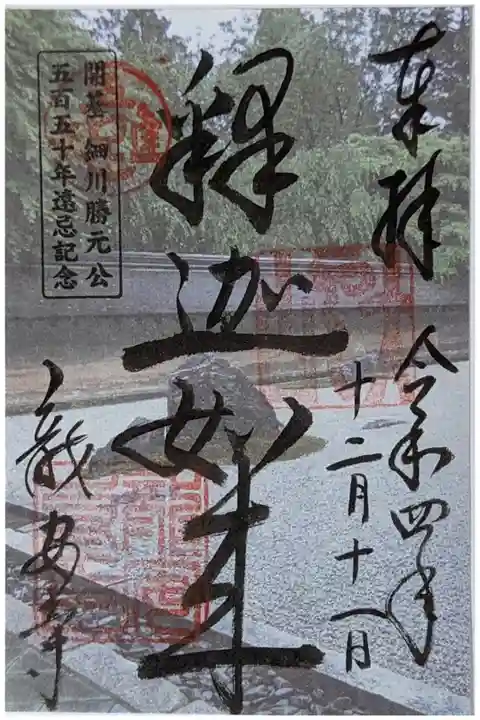 奉拝
令和四年
十二月十八日
釋迦如来
開基 細川勝元公
五百五十年遠忌記念
龍安寺